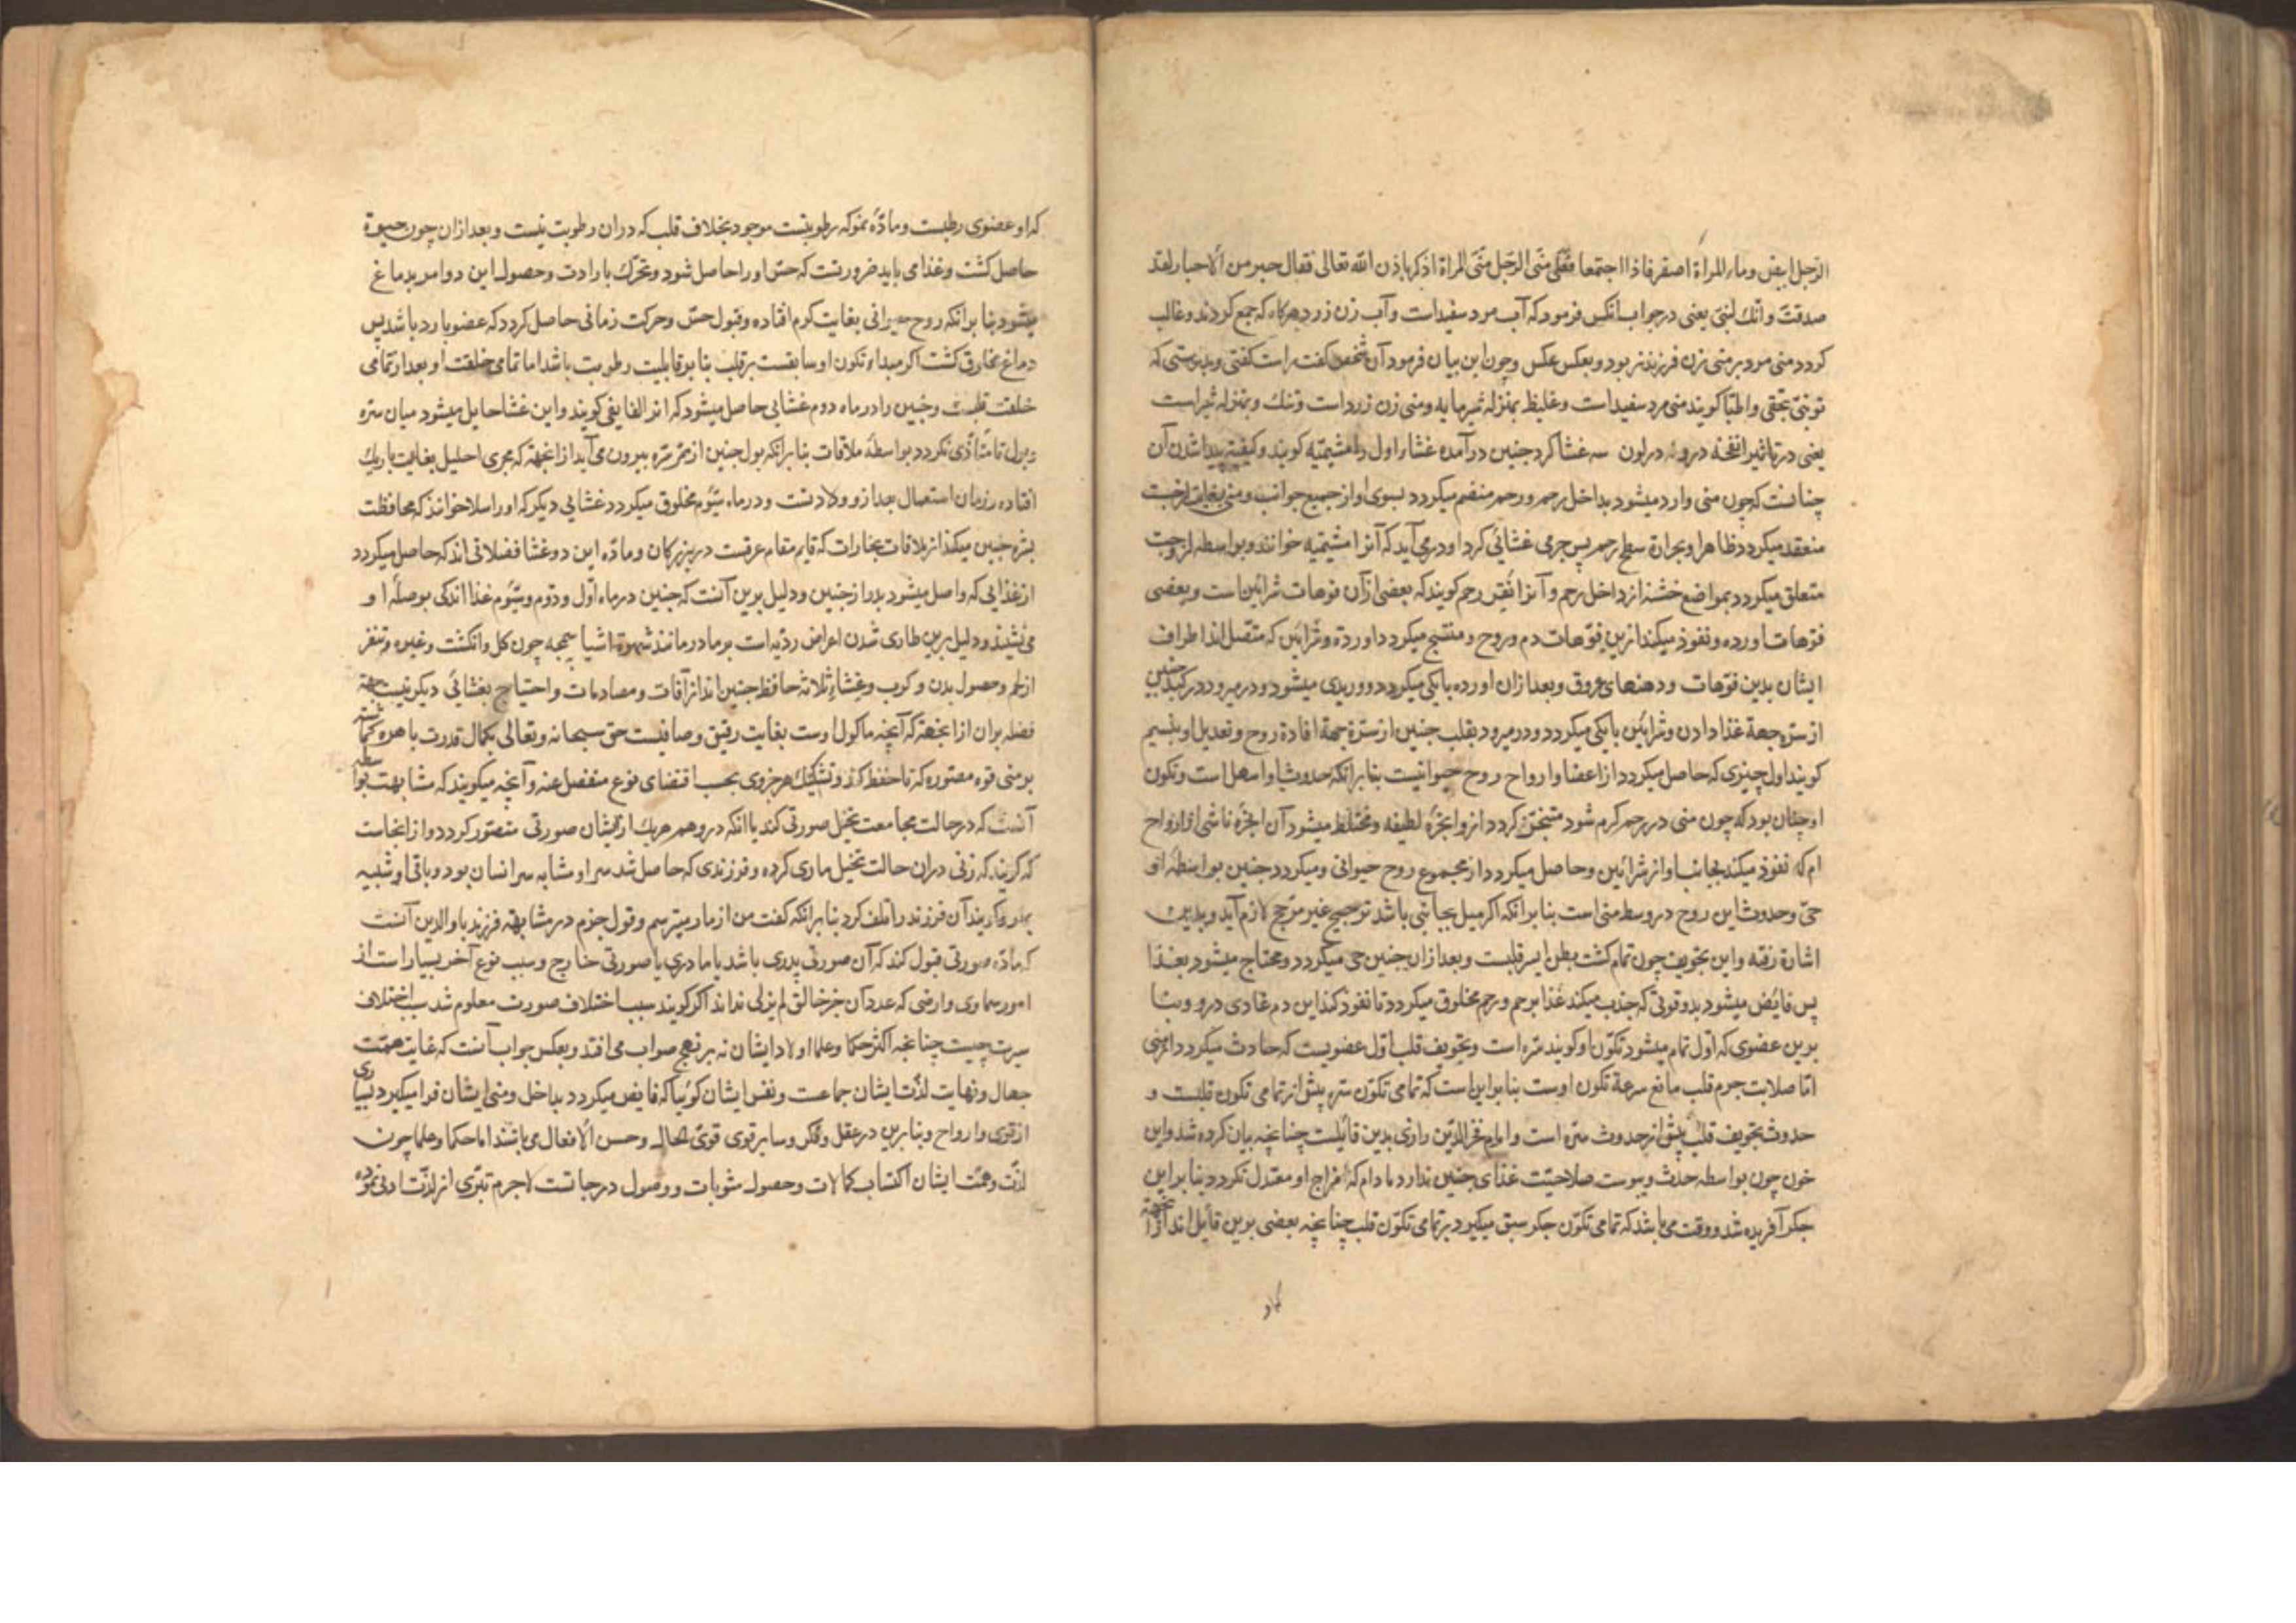 الرجل ابیض وماء المراة اصفر فاذا اجتمعا فعلی منی الرجل منی المراة اذکرا باذن الله تعالی فقال حبر من الاحبار لقد
صدقت وانك لنبی یعنی در جواب انکس فرمود که آب مرد سفید است وآب زن زرد هرکاه که جمع کردند وغالب
کردد منی مرد بر منی زن فرزند نر بود وبعکس عکس وچون این بیان فرمود آن شخص کفت راست کفتی وبدرستی که
تو نبی بحقی واطبا کویند منی مرد سفید است وغلیظ بمنزله شیرمایه ومنی زن زرد است وتنك وبمنزله شیر است
یعنی در تاثیر انفخه در و نه در لون سه غشا کرد جنین در آمده غشاء اول را مشیمیه کویند وکیفیة پیدا شدن آن
چنانست که چون منی وارد میشود بداخل رحم ورحم منضم میکردد بسوی او از جمیع جوانب ومنی بغایت لزجست
منعقد میکردد ظاهر او بحرارة سطح رحم پس جرمی غشائی کرد او در می آید که آنرا مشیمیه خوانند وبواسطه لزوجت
متعلق میکردد بمواضع خشنه از داخل رحم وآنرا نقر رحم کویند که بعضی از آن فوهات شرائین است وبعضی
فوهات اورده ونفوذ میکند ازین فوهات دم وروح ومنتسج میکردد اورده وشرائین که متصل اند اطراف
ایشان بدین فوهات ودهنهای عروق وبعد ازان اورده با یکی میکردد ووریدی میشود ودر میرود در کبد جنین
از سره جهة غذا دادن وشرائین با یکی میکردد ودر میرود بقلب جنین از سرة جهة افادة روح وتعدیل او بنسیم
کویند اول چیزی که حاصل میکردد از اعضا وارواح روح حیوانیست بنابر انکه حدوث او اسهل است وتکون
او چنان بود که چون منی در رحم کرم شود متبخر کردد ازو ابخرهٔ لطیفه ومختلط میشود آن ابخره ناشی از ارواح
ام که نفوذ میکند بجانب او از شرائین وحاصل میکردد از مجموع روح حیوانی ومیکردد جنین بواسطهٔ او
حی وحدوث این روح در وسط منی است بنابر انکه اکر میل بجانبی باشد ترجیح غیر مرجح لازم آید وبدین
اشارة رفته واین تجویف چون تمام کشت بطن ایسر قلبست وبعد ازان جنین حی میکردد ومحتاج میشود بغذا
پس فایض میشود بدو قوتی که جذب میکند غذا برحم ورحم مخلوق میکردد تا نفوذ کند این دم غادی درو وبنا
برین عضوی که اول تمام میشود تکون او کویند سره است وتجویف قلب اول عضویست که حادث میکردد اعنی
اما صلابت جرم قلب مانع سرعة تکون اوست بنابر این است که تمامی تکون سره پیش از تمامی تکون قلبست و
حدوث تجویف قلب پیش از حدوث سره است وامام فخر الدین رازی بدین قائلست چنانچه بیان کرده شد واین
خون چون بواسطه حدت ویبوست صلاحیت غذای جنین ندارد مادام که مزاج او معتدل نکردد بنابر این
جکر آفریده شد ووقت می باشد که تمامی تکون جکر سبق میکیرد بر تمامی تکون قلب چنانچه بعضی برین قائل اند از انجهة
که او عضوی رطبست ومادهٔ نمو که رطوبتست موجود بخلاف قلب که دران رطوبت نیست وبعد ازان چون حیوة
حاصل کشت وغذا می باید ضرورتست که حس او را حاصل شود وتحرك بارادت وحصول این دو امر بدماغ
میشود بنا برانکه روح حیوانی بغایت کرم افتاده وقبول حس وحرکت زمانی حاصل کردد که عضو بارد باشد پس
دماغ مخلوق کشت اکر مبداء تکون او سابقست بر قلب بنا بر قابلیت رطوبت باشد اما تمامی خلقت او بعد از تمامی
خلقت قلبست وجنین را در ماه دوم غشایی حاصل میشود که انرا لفایفی کویند واین غشا حایل میشود میان سره
وبول تا متأذی نکردد بواسطهٔ ملاقات بنا برانکه بول جنین از ممر سره بیرون می آید از انجهة که مجری احلیل بغایت باریك
افتاده وزمان استعمال بعد از وولادتست ودر ماه سیوم مخلوق میکردد غشایی دیکر که او را سلا خوانند که محافظت
بشره جنین میکند از ملاقات بخارات که قایم مقام عرقست در بزرکان ومادهٔ این دو غشا فضلاتی اند که حاصل میکردد
از غذایی که واصل میشود بدو از جنین ودلیل برین آنست که جنین در ماه اول ودوم وسیوم غذا اندکی بوصلهٔ او
می نشیند ودلیل برین طاری شدن اعراض ردیه است بر مادر مانند شهوة اشیاء سمجه چون کل وانکشت وغیره وتنفر
از لحم وحصول بدن و کرب وغشاء ثلاثه حافظ جنین اند از آفات ومصادمات واحتیاج بغشائی دیکر نیست جهة
فضله بران از انجهة که آنچه ماکول اوست بغایت رقیق وصافیست حق سبحانه وتعالی بکمال قدرت باهره کماشته
بر منی قوه مصوره که تا حفظ کند وتشکیك هر جزوی بحسب اقتضای نوع منفصل عنه وآنچه میکویند که مشابهت بواسطه
آنست که در حالت مجامعت تخیل صورتی کند یا انکه در وهم هر یك از ایشان صورتی متصور کردد واز اینجاست
که کویند که زنی دران حالت تخیل ماری کرده وفرزندی که حاصل شد سر او مشابه سر انسان بود وباقی او شبیه
بمار وکویند آن فرزند را تلف کرد بنا برانکه کفت من از مار میترسم وقول جزم در مشابهة فرزند باوالدین آنست
که ماده صورتی قبول کند که آن صورتی پدری باشد یا مادری یا صورتی خارج وسبب نوع آخر بسیار است از
امور سماوی وارضی که عدد آن جز خالق لم یزلی نداند اکر کویند سبب اختلاف صورت معلوم شد سبب اختلاف
سیرت چیست چنانچه اکثر حکما وعلما اولاد ایشان نه بر نهج صواب می افتد وبعکس جواب آنست که غایت همت
جهال ونهایت لذت ایشان جماعست ونفس ایشان کوئیا که فایض میکردد بداخل ومنی ایشان فرا میکیرد بسیاری
از قوی وارواح وبنابرین در عقل وفکر وسایر قوی قوی الحال وحسن الافعال می باشند اما حکما وعلما چون
لذت وهمت ایشان اکتساب کمالات وحصول مثوبات ووصول درجاتست لاجرم تبری از لذت ادنی نموده